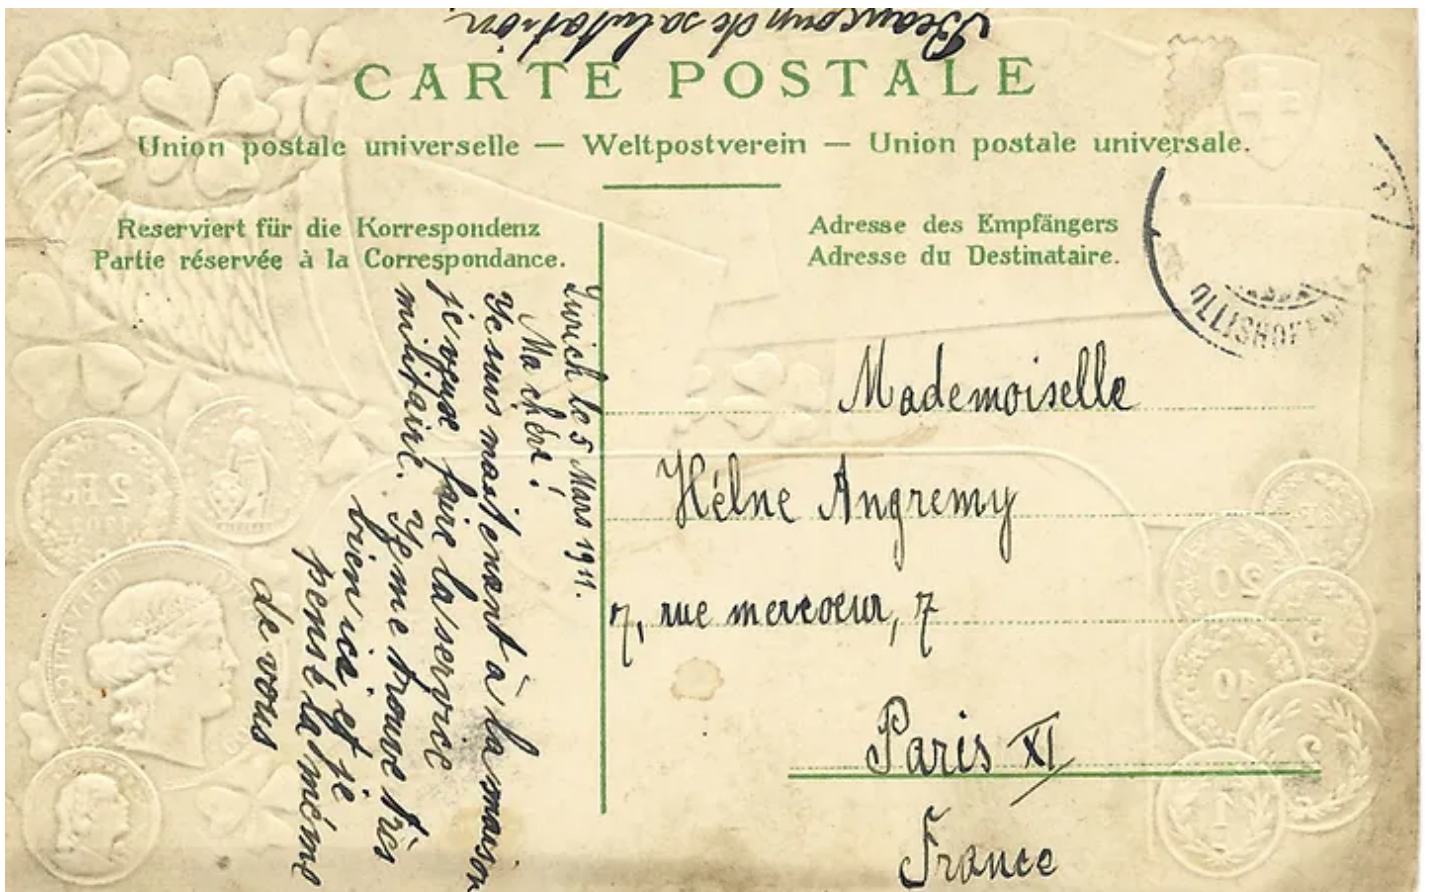 Beaucoup de salutation.
CARTE POSTALE
Union postale universelle — Weltpostverein — Union postale universale.
Reserviert für die Korrespondenz
Partie réservée à la Correspondance.
Adresse des Empfängers
Adresse du Destinataire.
Zurich le 5 Mars 1911.
Ma chère!
Je suis maintenant à la maison
je veux faire la service
militaire. Je me trouve très
bien ici et je
pense la même
de vous
Mademoiselle
Hélne Angremy
7, rue mercoeur, 7
Paris XI
France
OLLISHOFEN
2 Fr.
20
5
10
2
1